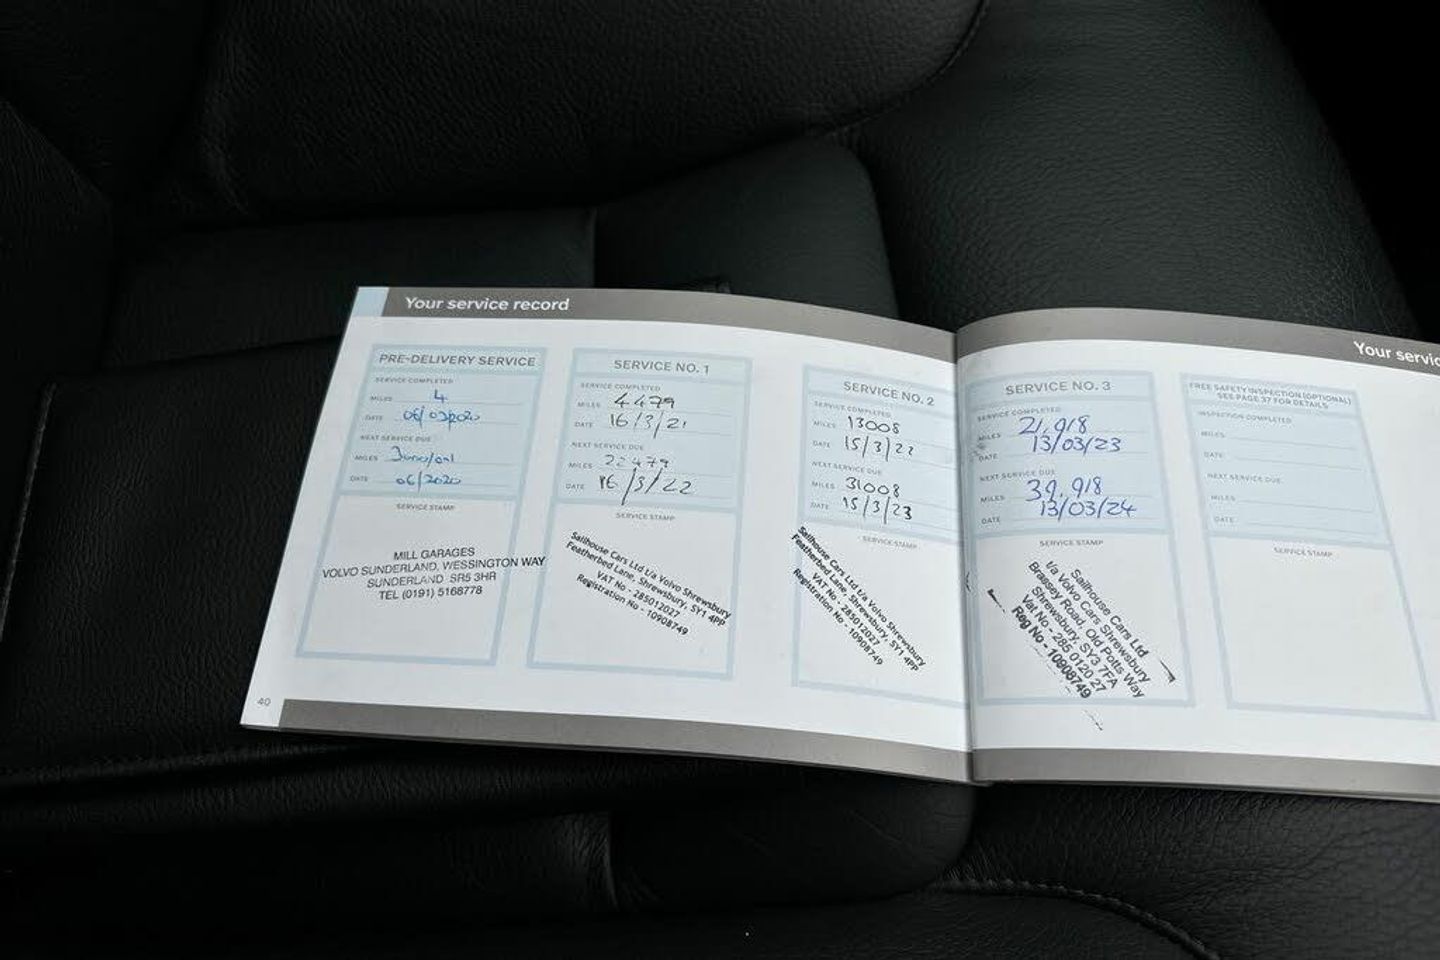 Your service record
PRE-DELIVERY SERVICE
SERVICE COMPLETED
MILES 4
DATE 06/03/2020
NEXT SERVICE DUE
MILES
DATE 06/2020
SERVICE STAMP
MILL GARAGES
VOLVO SUNDERLAND, WESSINGTON WAY
SUNDERLAND SR5 3HR
TEL (0191) 5168778
40
SERVICE NO. 1
SERVICE COMPLETED
MILES 4479
DATE 16/3/21
NEXT SERVICE DUE
MILES 22479
DATE 16/3/22
SERVICE STAMP
Sailhouse Cars Ltd t/a Volvo Shrewsbury
Featherbed Lane, Shrewsbury, SY1 4PP
VAT No - 285012027
Registration No - 10908749
SERVICE NO. 2
SERVICE COMPLETED
MILES 13008
DATE 15/3/22
NEXT SERVICE DUE
MILES 31008
DATE 15/3/23
SERVICE STAMP
Sailhouse Cars Ltd t/a Volvo Shrewsbury
Featherbed Lane, Shrewsbury, SY1 4PP
VAT No - 285012027
Registration No - 10908749
Your servic
SERVICE NO. 3
SERVICE COMPLETED
MILES 21,918
DATE 13/03/23
NEXT SERVICE DUE
MILES 39,918
DATE 13/03/24
SERVICE STAMP
Sailhouse Cars Ltd
t/a Volvo Cars Shrewsbury
Brassey Road, Old Potts Way
Shrewsbury, SY3 7FA
Vat No - 285 0120 27
Reg No - 10908749
FREE SAFETY INSPECTION (OPTIONAL)
SEE PAGE 37 FOR DETAILS
INSPECTION COMPLETED
MILES
DATE
NEXT SERVICE DUE
MILES
DATE
SERVICE STAMP